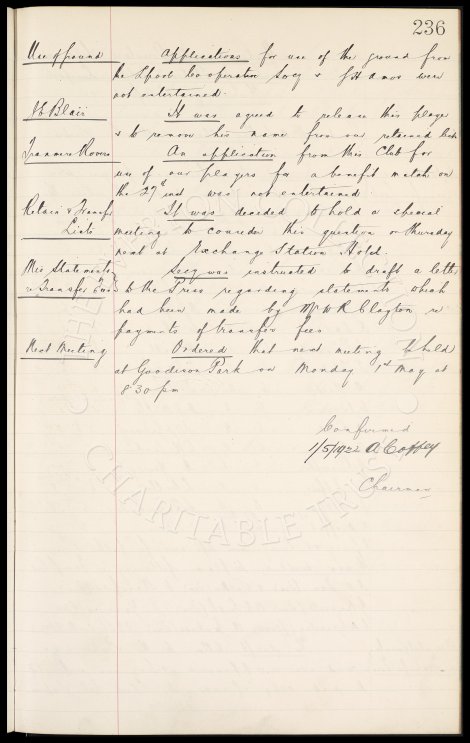 236
Use of ground Applications for use of the ground from
the Lpool Co operative Socy & J H Amos were
not entertained.
J Blair It was agreed to release this player
& to remove his name from our retained list
Tranmere Rovers An application from this Club for
use of our players for a benefit match on
the 27th inst was not entertained
Retain & Transfer It was decided to hold a special
Lists meeting to consider this question on Thursday
next at Exchange Station Hotel.
Mis Statements Secy was instructed to draft a letter
re Transfer Fees to the Press regarding statements which
had been made by Mr W R Clayton re
payments of transfer fees
Next Meeting Ordered that next meeting be held
at Goodison Park on Monday 1st May at
8 30 pm
Confirmed
1/5/1922 A Coffey
Chairman
CHARITABLE TRUST